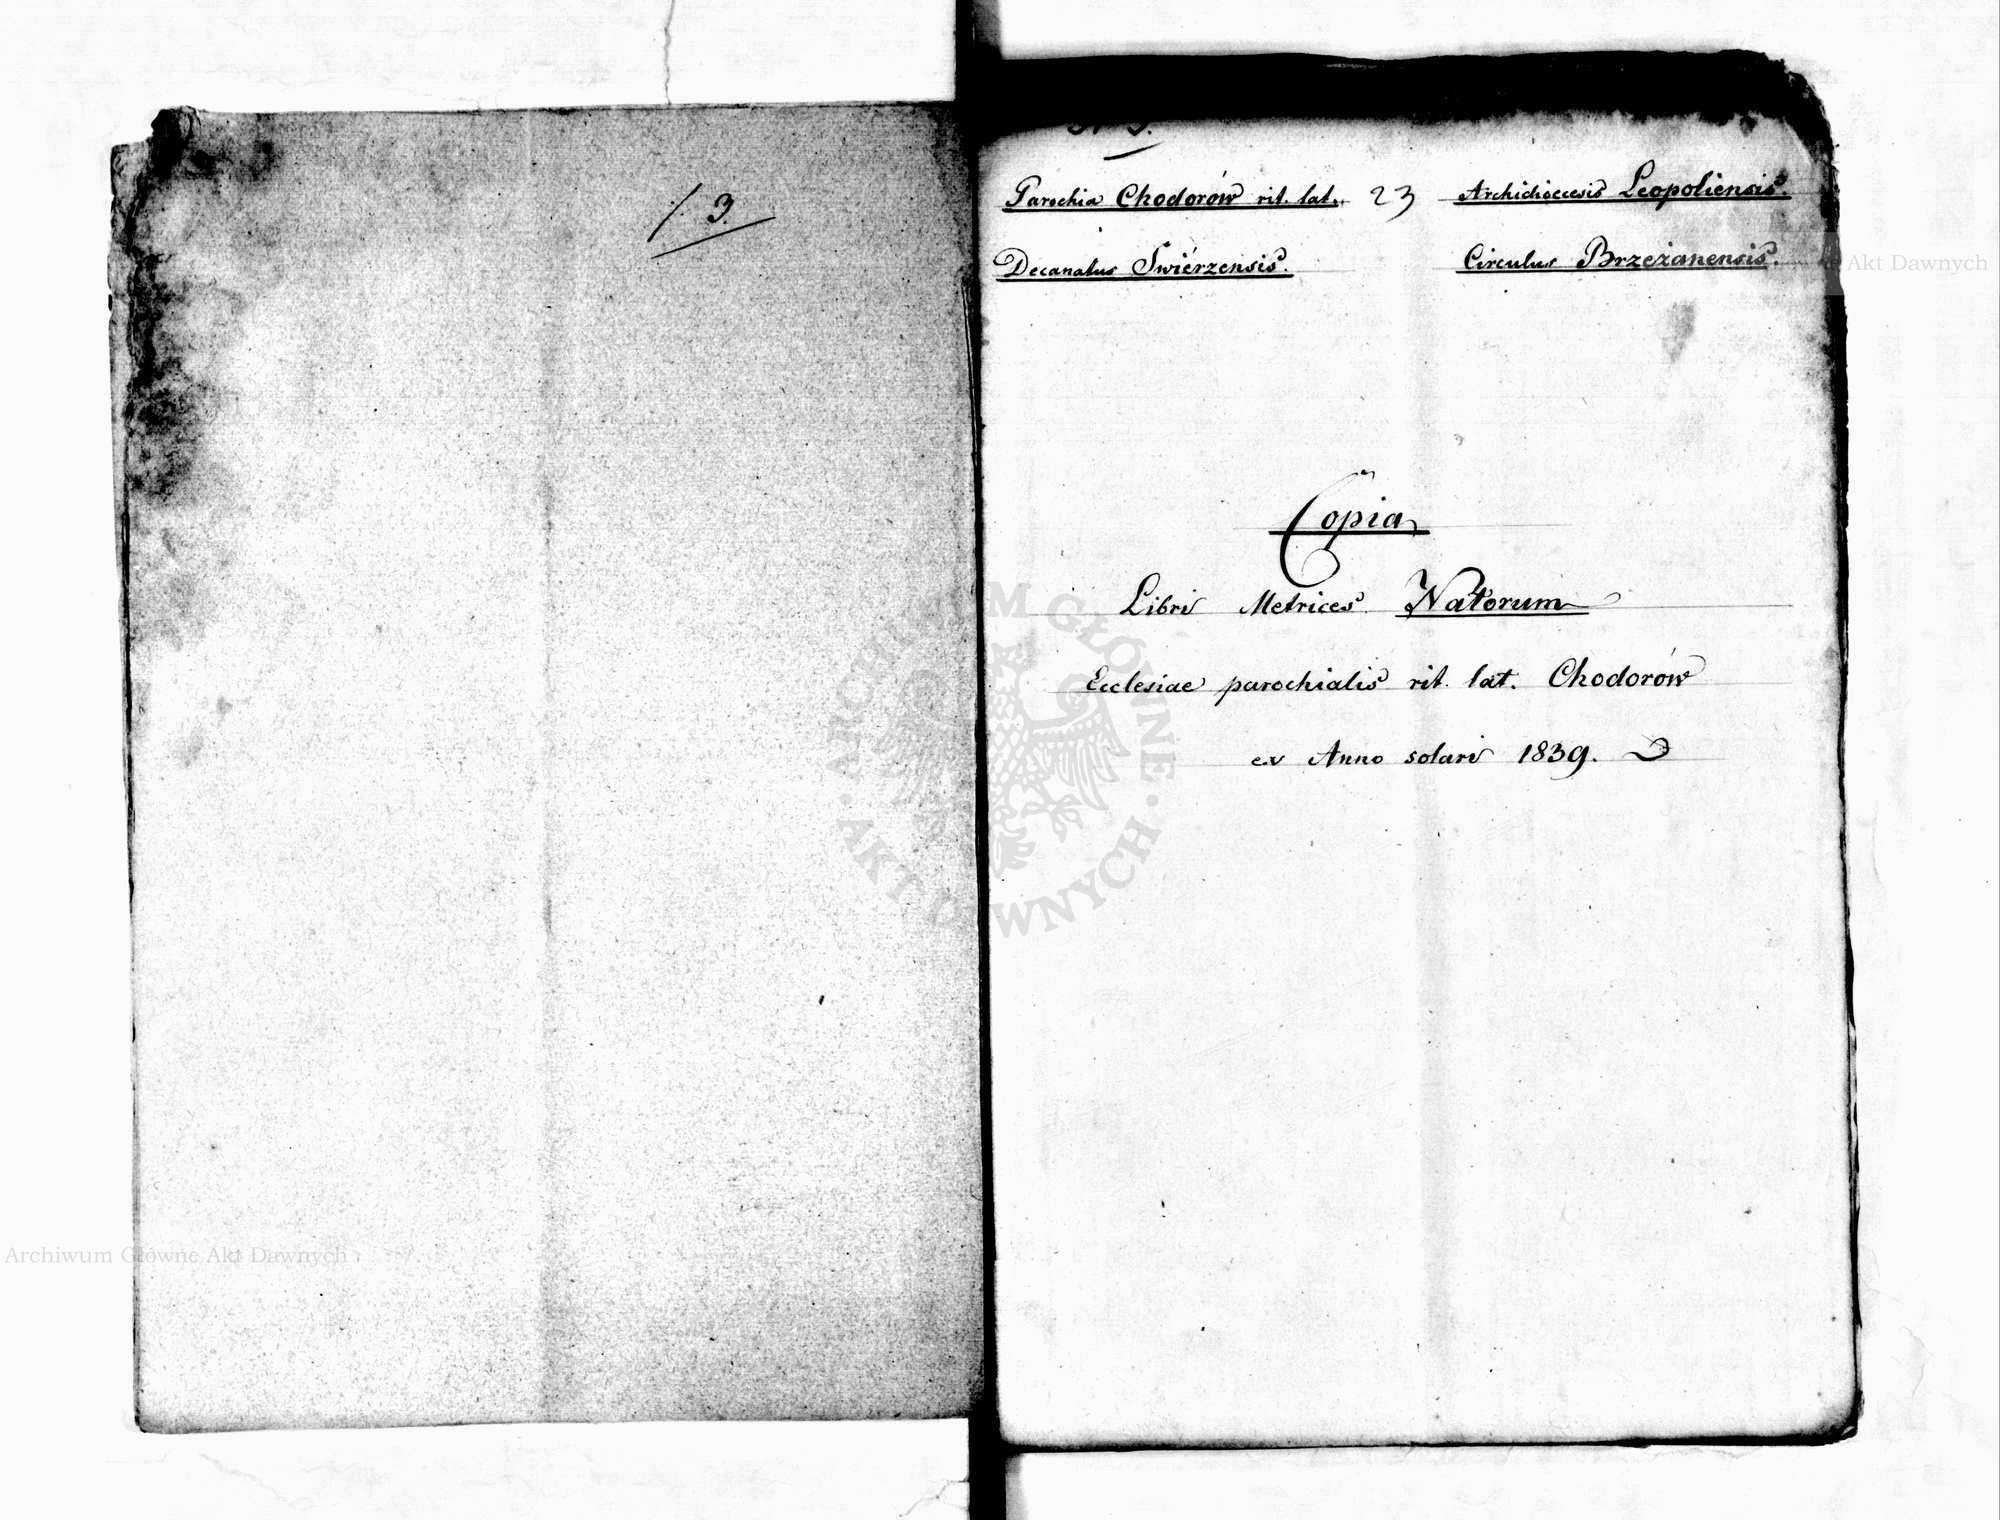 /. 3.
Parochia Chodorów rit. lat. 23 Archidioecesis Leopoliensis.
Decanatus Swiérzensis. Circulus Brzeżanensis.
Copia
Libri Metrices Natorum
Ecclesiae parochialis rit. lat. Chodorów
ex Anno solari 1839.
ARCHIWUM GŁÓWNE
AKT DAWNYCH
Akt Dawnych
Archiwum Główne Akt Dawnych